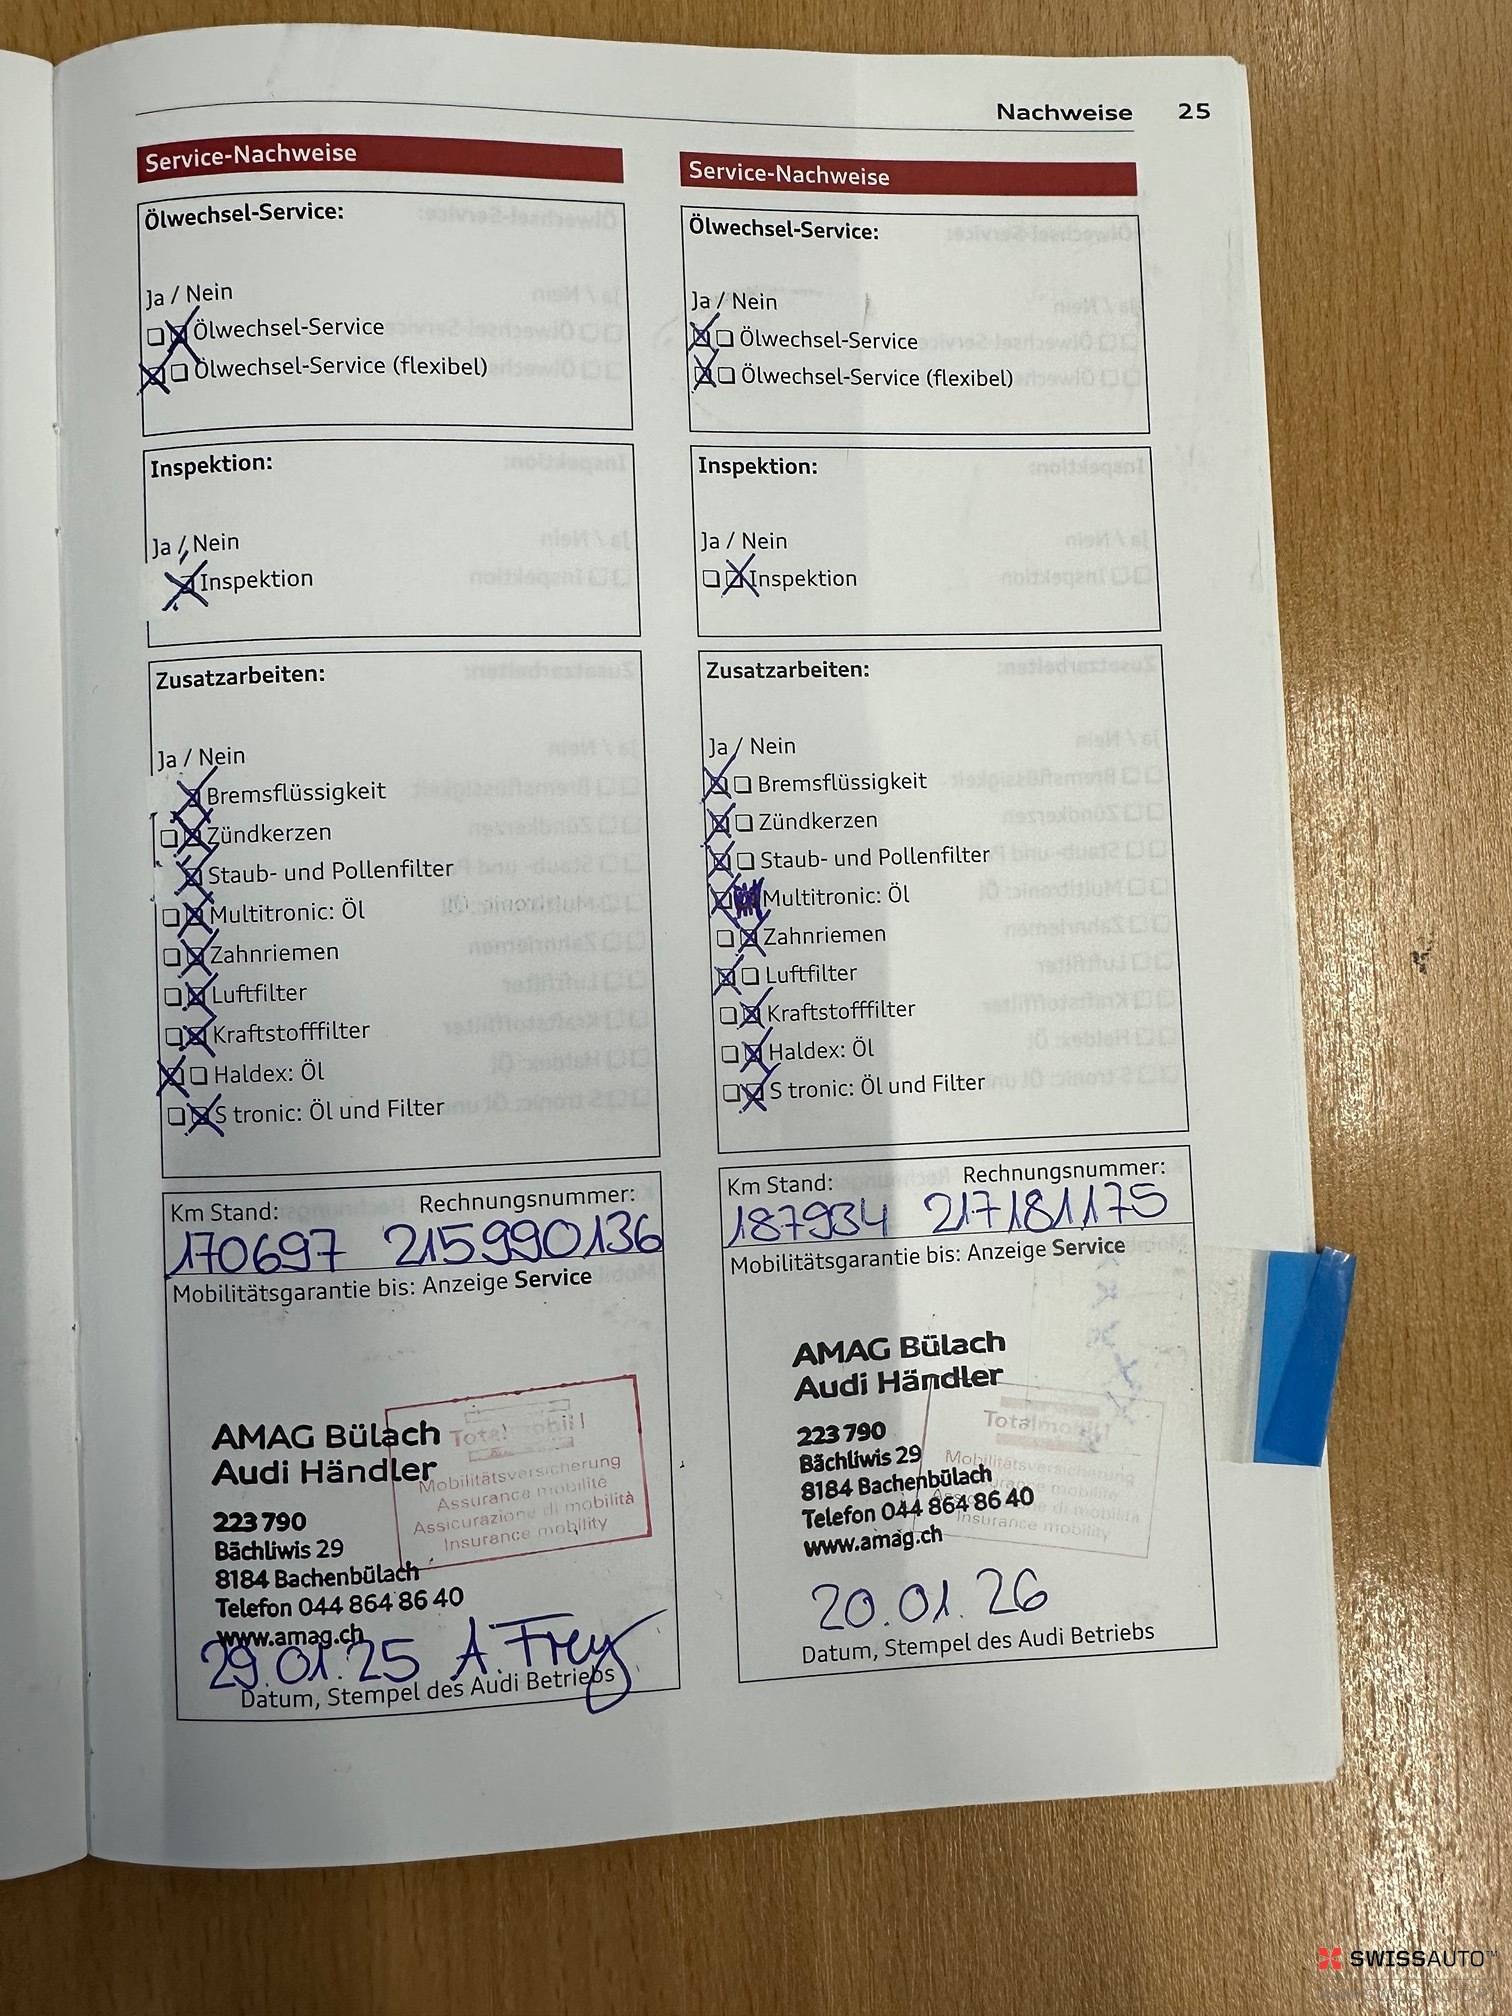 Nachweise 25
Service-Nachweise
Ölwechsel-Service:
Ja / Nein
Ölwechsel-Service
Ölwechsel-Service (flexibel)
Inspektion:
Ja / Nein
Inspektion
Zusatzarbeiten:
Ja / Nein
Bremsflüssigkeit
Zündkerzen
Staub- und Pollenfilter
Multitronic: Öl
Zahnriemen
Luftfilter
Kraftstofffilter
Haldex: Öl
S tronic: Öl und Filter
Km Stand: Rechnungsnummer:
170697 215990136
Mobilitätsgarantie bis: Anzeige Service
AMAG Bülach
Audi Händler
223 790
Bächliwis 29
8184 Bachenbülach
Telefon 044 864 86 40
www.amag.ch
Totalmobil!
Mobilitätsversicherung
Assurance mobilité
Assicurazione di mobilità
Insurance mobility
29.01.25 A. Frey
Datum, Stempel des Audi Betriebs
Service-Nachweise
Ölwechsel-Service:
Ja / Nein
Ölwechsel-Service
Ölwechsel-Service (flexibel)
Inspektion:
Ja / Nein
Inspektion
Zusatzarbeiten:
Ja / Nein
Bremsflüssigkeit
Zündkerzen
Staub- und Pollenfilter
Multitronic: Öl
Zahnriemen
Luftfilter
Kraftstofffilter
Haldex: Öl
S tronic: Öl und Filter
Km Stand: Rechnungsnummer:
187934 217181175
Mobilitätsgarantie bis: Anzeige Service
AMAG Bülach
Audi Händler
223 790
Bächliwis 29
8184 Bachenbülach
Telefon 044 864 86 40
www.amag.ch
Totalmobil!
Mobilitätsversicherung
Assurance mobilité
Assicurazione di mobilità
Insurance mobility
20.01.26
Datum, Stempel des Audi Betriebs
SWISSAUTO™